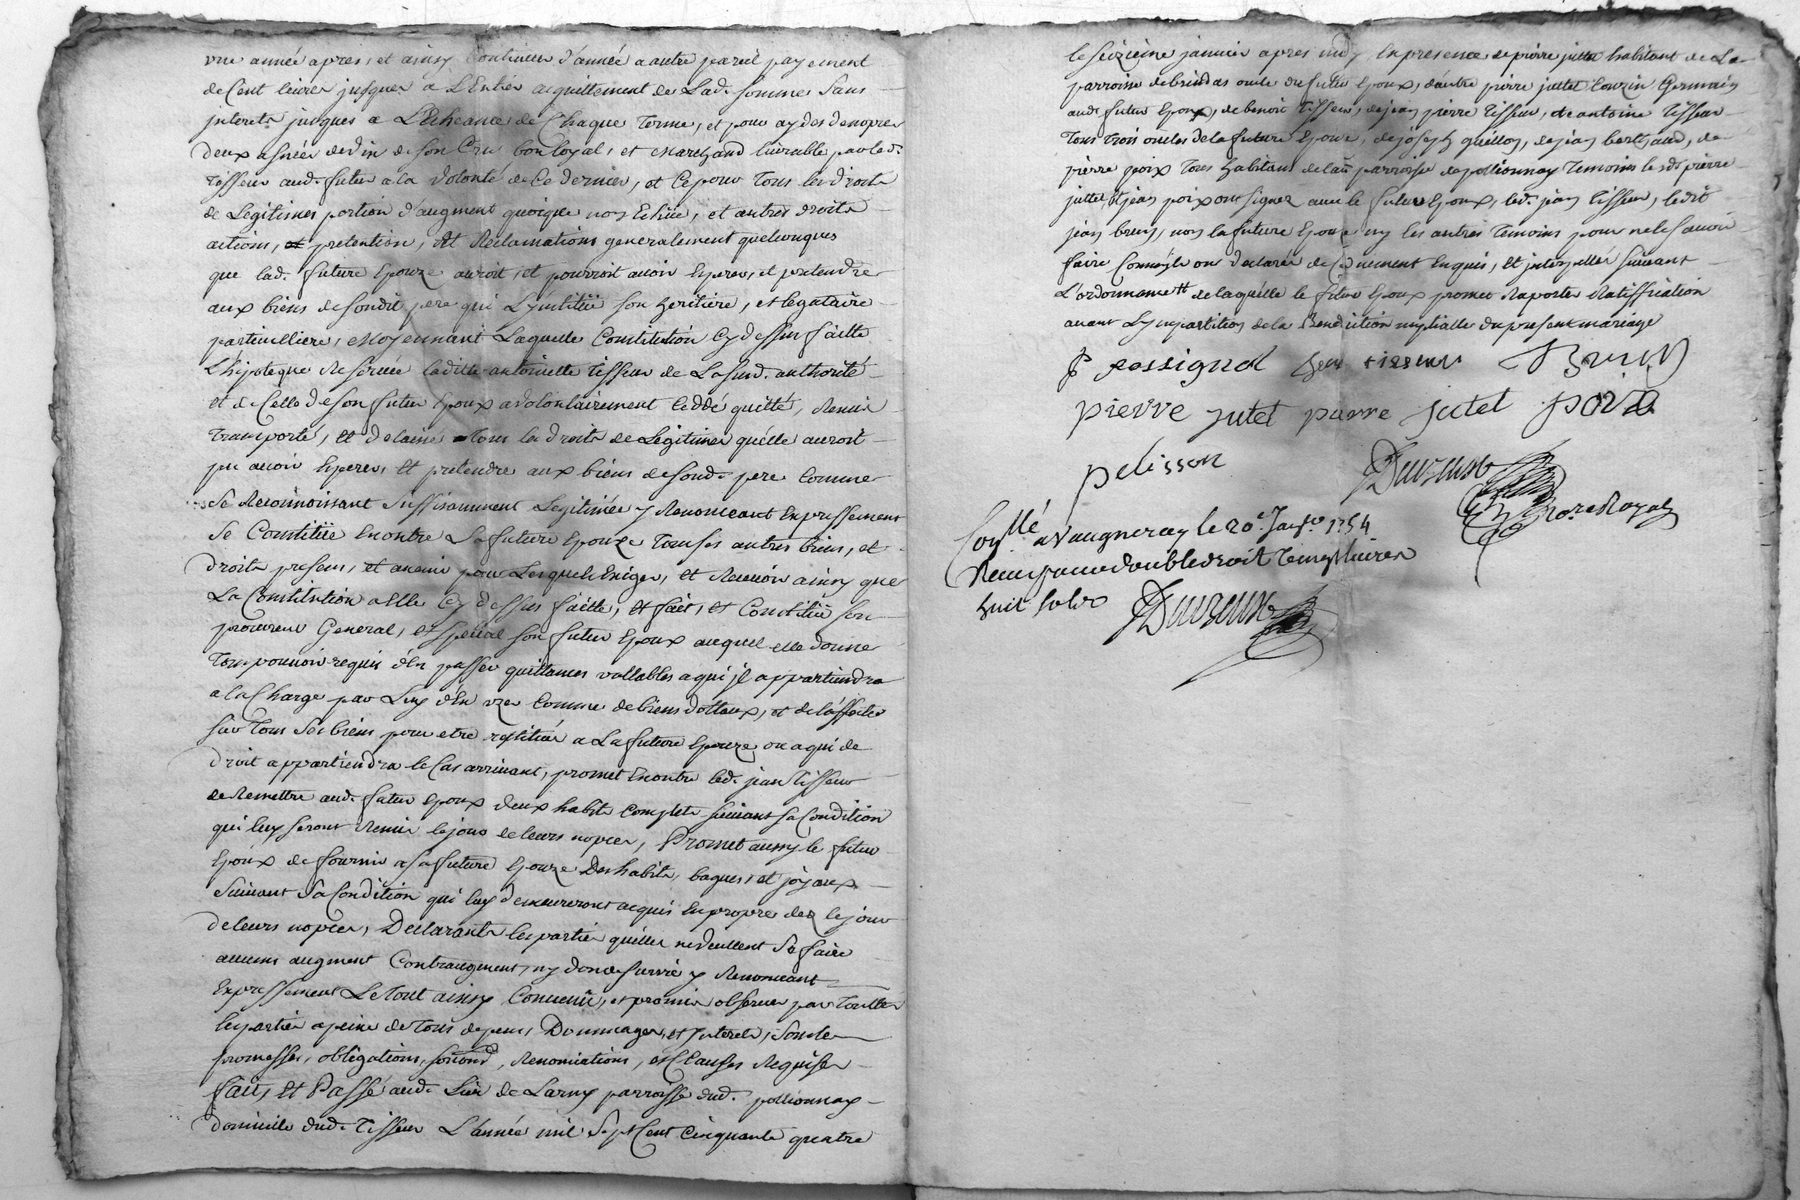 vne année apres, et ainsy Continuer d'année a autre pareil payement
de Cent livres jusques a L'Entier acquittement de Lad. somme sans
interets jusques a L'Echeance de Chaque Terme, et pour aydes de nopces
deux asnées de vin de son Cru bon loyal, et Marchand livrable par led.
Tisseur aud. futur a la volonté de Ce dernier, et Ce pour Tous les droits
de Legitimes portion d'augment quoique non Echüe, et autres droits
actions, et pretention, et Reclamations generalement quelconques
que lad. future Epouze auroit, et pourroit avoir Esperer, et pretendre
aux biens de sondit pere qui L'jnstitüe son heritiere, et legataire
particulliere, Moyennant Laquelle Constitution Cy dessus faitte
L'hipoteque Reservée laditte antoinette Tisseur de La susd. authorité
et de Celle de son futur Epoux a volontairement Ceddé quitté, Remis
Transporté, et delaissé Tous les droits de Legitimes qu'elle auroit
pu avoir Esperer, et pretendre aux biens de sond. pere Comme
Se Reconnoissant suffisamment Legitimée y Renonceant Expressement
Se Constitüe Encontre La future Epouze Tous ses autres biens, et
droits presens, et avenir pour Lesquels Exiger, et Recevoir ainsy que
La Constitution a Elle Cy dessus faitte, Et fait, et Constitüe son
procureur General, et special son futur Epoux auquel elle donne
Tous pouvoir requis d'En passer quittances vallables a qui jl appartiendra
a la Charge par Luy d'En vzer Comme de biens dottaux, et de les assurer
sur Tous ses biens pour etre restitüés a La future Epouze ou a qui de
droit appartiendra le Cas arrivant, promet Encontre led. jean Tisseur
de Remettre aud. futur Epoux deux habits Complets suivant sa Condition
qui luy seront Remis le jour de leurs nopces, Promet aussy le futur
Epoux de fournir a sa future Epouze Des habits, bagues, et joyaux
suivant sa Condition qui luy demeureront acquis En propre dez le jour
de leurs nopces, Declarants les parties qu'elles ne veullent se faire
aucuns augment Contraugment, ny don de survie y Renonceant
Expressement Le Tout ainsy Convenü, et promis observer par Touttes
les parties a peine de Tous depens, Dommages, et jnterets, sous les
promesses, obligations, soumô, Renonciations, et Clauses Requises
fait, Et Passé aud. Lieu de Larny parroisse dud. pollionnay
domicille dud. Tisseur L'année mil Sept Cent Cinquante quatre
le seizieme janvier apres midy En presence de pierre juttet habitant de La
parroisse de brindas oncle du futur Epoux, d'autre pierre juttet Couzin Germain
aud. futur Epoux, de benoit Tisseur, de jean pierre Tisseur, et antoine Tisseur
Tous Trois oncles de la future Epouze, de joseph quillon, de jean berthaud, de
pierre poix Tous habitans de lad. parroisse de pollionnay Temoins lesd. pierre
juttet et jean poix ont signez avec le futur Epoux, led. jean Tisseur, ledit
jean brun, non la future Epouze ny les autres Temoins pour ne le savoir
faire Comm'jls ont declarés de Ce duement Enquis, Et jnterpellés suivant
L'ordonnance de laquelle le futur Epoux promet Raporter Ratiffication
avant L'jmpartition de la Benediction nuptialle du present mariage
P rossignol jean tisseur Brun
pierre jutet pierre jutet poix
pelisson
Duvreux
Nore Royal
Conllé a Vaugneray le 20e Janer 1754
Reçu pour double droit
huit sols
Duvreux